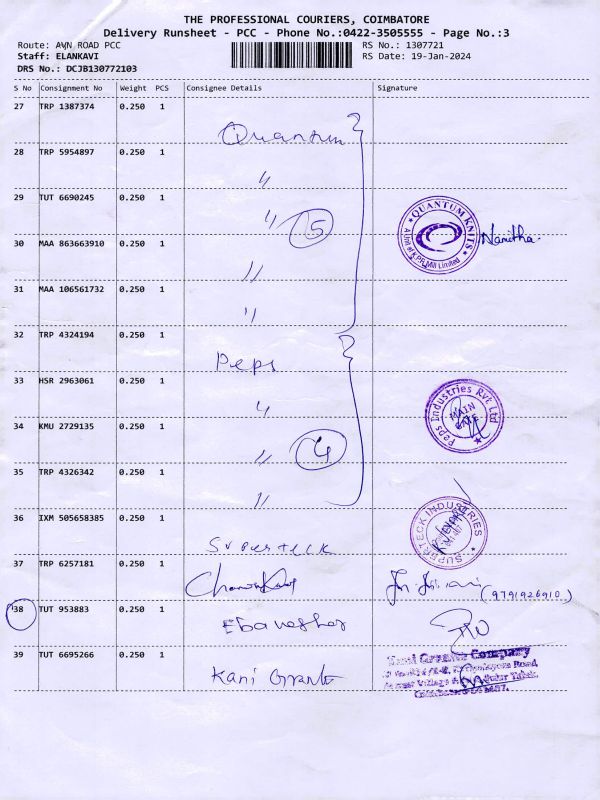 THE PROFESSIONAL COURIERS, COIMBATORE
Delivery Runsheet - PCC - Phone No.:0422-3505555 - Page No.:3
Route: AVN ROAD PCC
RS No.: 1307721
Staff: ELANKAVI
RS Date: 19-Jan-2024
DRS No.: DCJB130772103
S No Consignment No Weight PCS Consignee Details Signature
27 TRP 1387374 0.250 1 Quantum
28 TRP 5954897 0.250 1 〃
29 TUT 6690245 0.250 1 〃 5
QUANTUM KNITS
A Unit of K.P.R. Mill Limited
Nanitha
30 MAA 863663910 0.250 1 〃
31 MAA 106561732 0.250 1 〃
32 TRP 4324194 0.250 1 Peps
33 HSR 2963061 0.250 1 〃
Peps Industries Pvt Ltd
MAIN GATE
34 KMU 2729135 0.250 1 〃 4
35 TRP 4326342 0.250 1 〃
36 IXM 505658385 0.250 1 Superteck
SUPERTECK INDUSTRIES
37 TRP 6257181 0.250 1
(9791926910)
38 TUT 953883 0.250 1 Ebaneshar
39 TUT 6695266 0.250 1 Kani Granite
Kani Granite Company
Road,
Village
Taluk,
Coimbatore